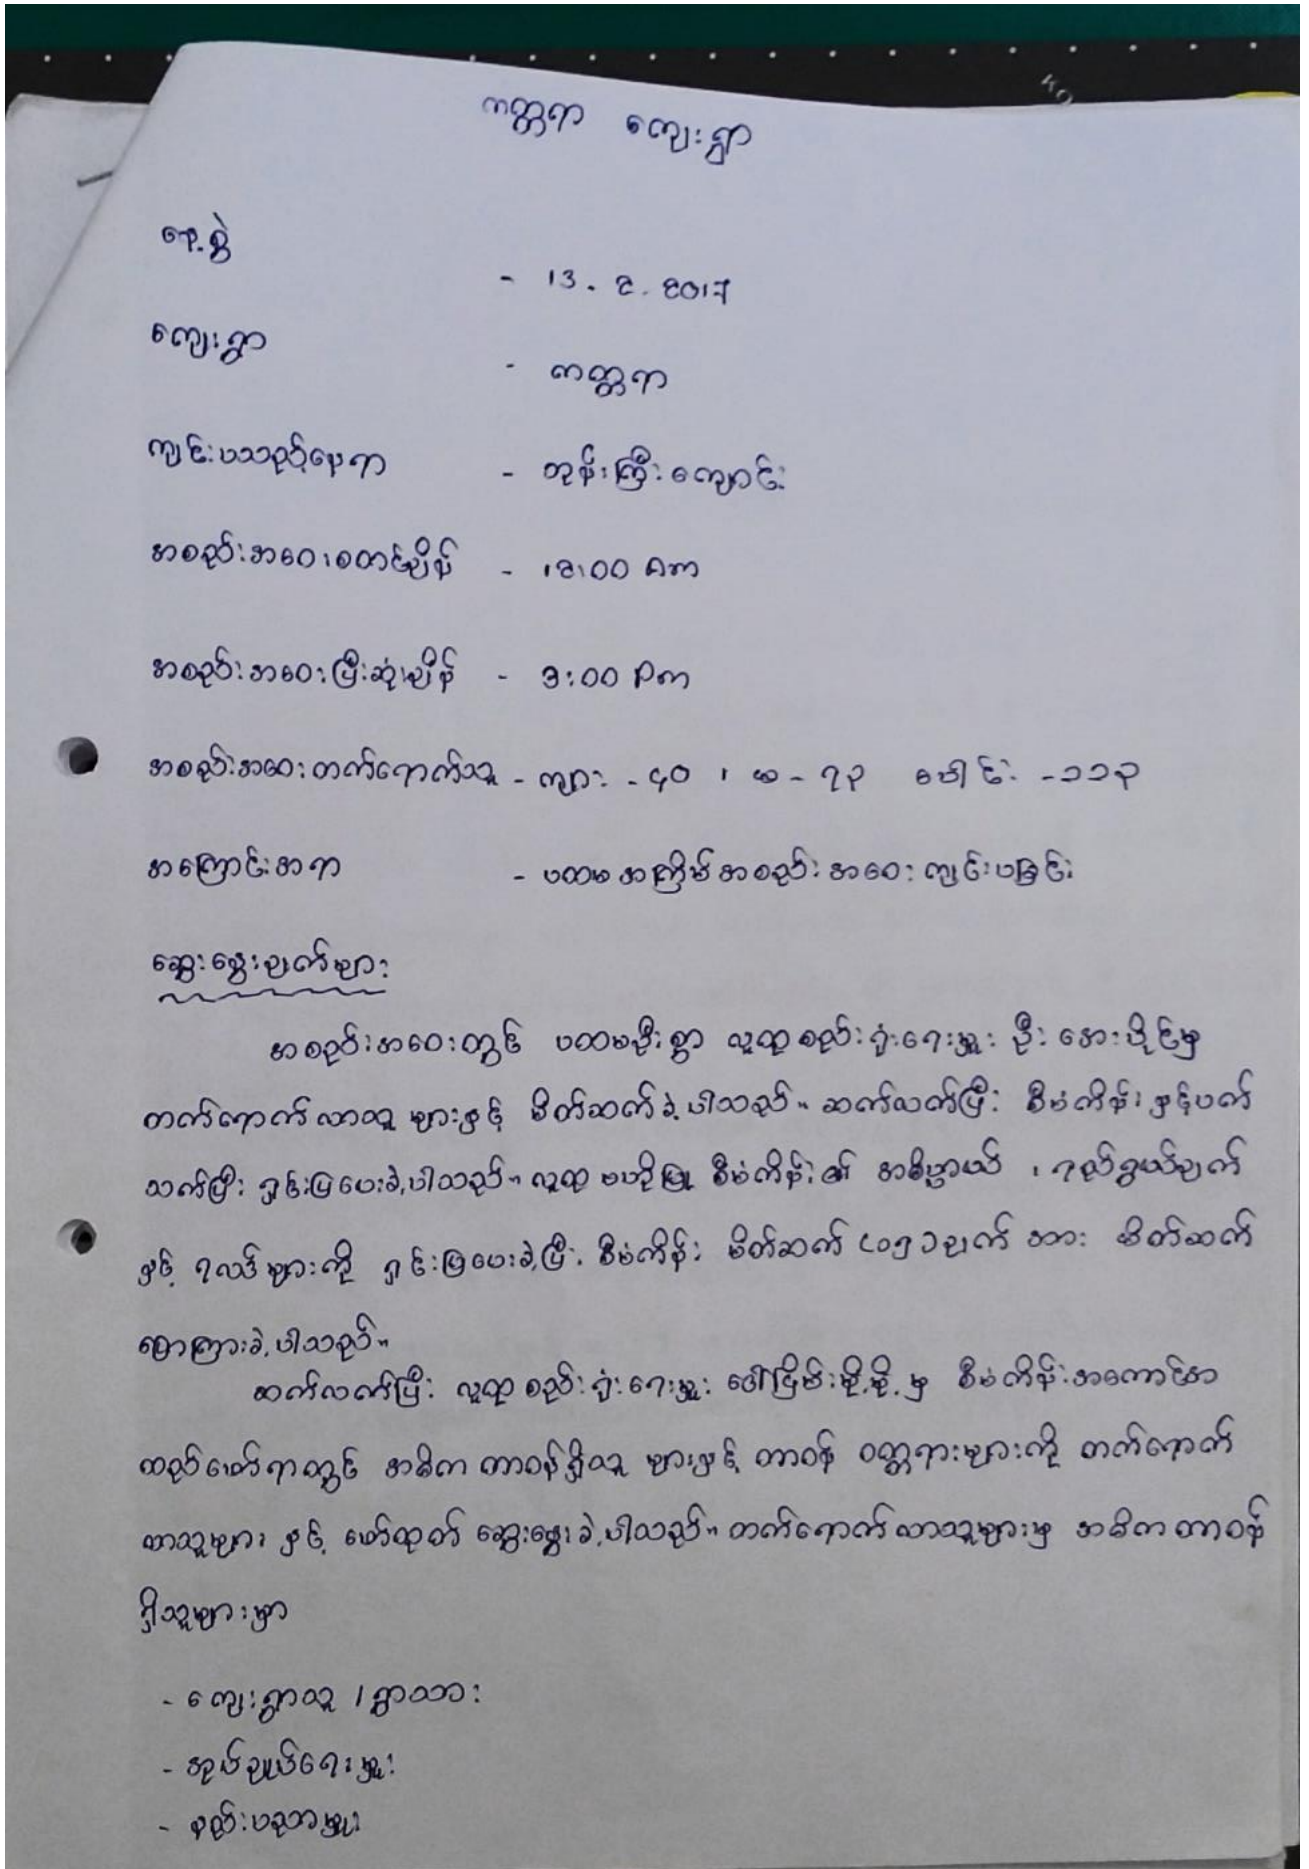 ကတ္တရာ ကျေးရွာ
နေ့စွဲ - 13. 2. 2017
ကျေးရွာ - ကတ္တရာ
ကျင်းပသည့်နေရာ - ဘုန်းကြီးကျောင်း
အစည်းအဝေးစတင်ချိန် - 12:00 Am
အစည်းအဝေးပြီးဆုံးချိန် - 3:00 Pm
အစည်းအဝေးတက်ရောက်သူ - ကျား - ၄၀ ၊ မ - ၇၃ ပေါင်း - ၁၁၃
အကြောင်းအရာ - ပထမအကြိမ်အစည်းအဝေးကျင်းပခြင်း
ဆွေးနွေးချက်များ
အစည်းအဝေးတွင် ပထမဦးစွာ လူထုစည်းရုံးရေးမှူး ဦးအေးပိုင်မှ
တက်ရောက်လာသူ များနှင့် မိတ်ဆက်ခဲ့ပါသည်။ ဆက်လက်ပြီး စီမံကိန်းနှင့်ပတ်
သက်ပြီး ရှင်းပြပေးခဲ့ပါသည်။ လူထုဗဟိုပြု စီမံကိန်း၏ အဓိပ္ပာယ် ၊ ရည်ရွယ်ချက်
နှင့် ရလဒ်များကို ရှင်းပြပေးခဲ့ပြီး စီမံကိန်း မိတ်ဆက် (၁၅)ချက် အား မိတ်ဆက်
ပြောကြားခဲ့ပါသည်။
ဆက်လက်ပြီး လူထုစည်းရုံးရေးမှူး ဒေါ်ငြိမ်းမို့မို့မှ စီမံကိန်းအကောင်အ
ထည်ဖော်ရာတွင် အဓိက တာဝန်ရှိသူ များနှင့် တာဝန် ဝတ္တရားများကို တက်ရောက်
လာသူများ နှင့် ဖော်ထုတ် ဆွေးနွေးခဲ့ပါသည်။ တက်ရောက်လာသူများမှ အဓိကတာဝန်
ရှိသူများမှာ
- ကျေးရွာသူ / ရွာသား
- အုပ်ချုပ်ရေးမှူး
- နည်းပညာမှူး